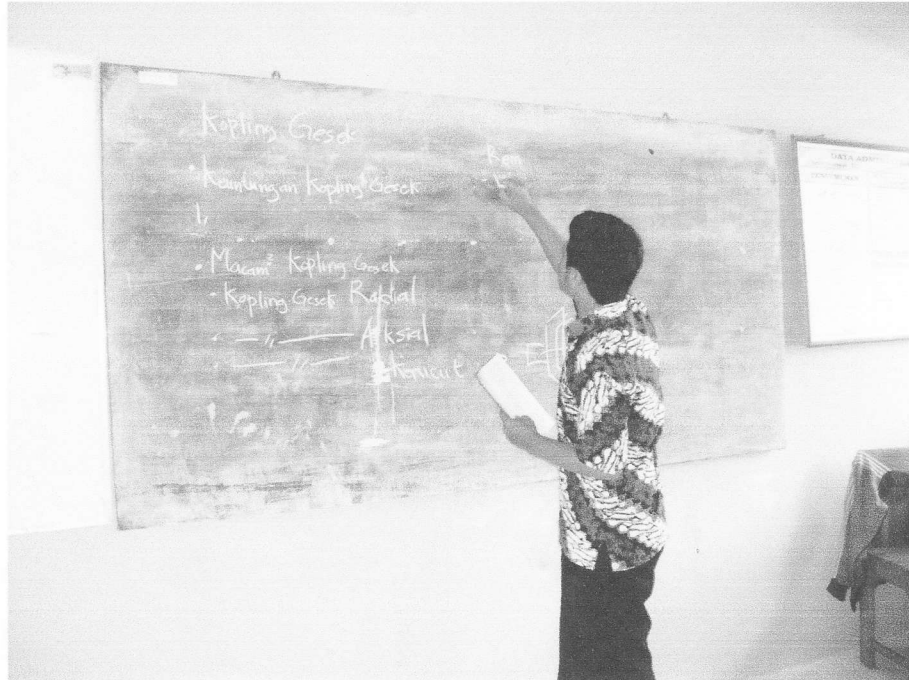 Kopling Gesek
• Keuntungan Kopling Gesek
• Macam² Kopling Gesek
- Kopling Gesek Radial
- — " — Aksial
- — " — Kerucut
DATA